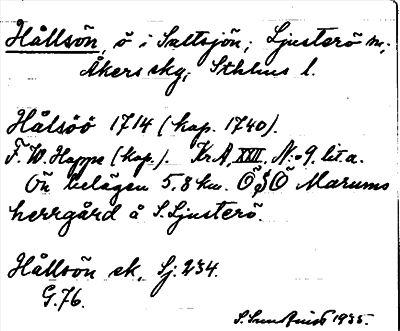 Hållsön, ö i Saltsjön; Ljusterö sn,
Åkers skg, Sthlms l.
Hålsöö 1714 (kop. 1740).
F. W. Hoppe (kop.). KrA, XXII, N:o 9 lit a.
Ön belägen 5,8 km. ÖSÖ Marums
herrgård å S. Ljusterö.
Hållsön sk, Sj. 234.
G. 76.
S. 1935.